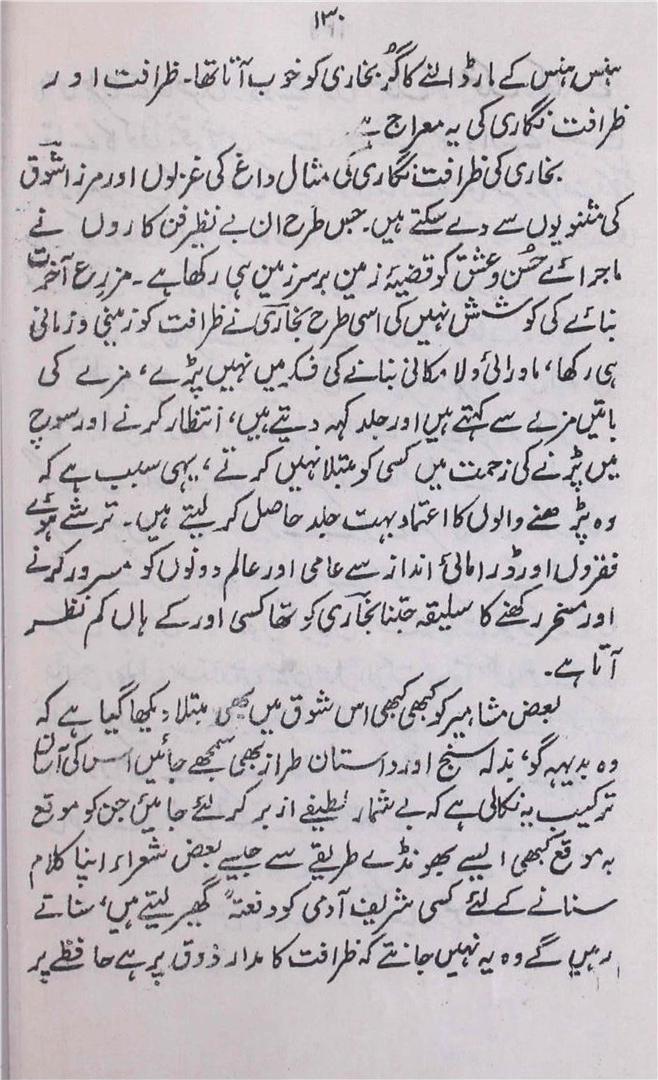 ۱۳۰
ہنس ہنس کے مار ڈالنے کا گُر بخاری کو خوب آتا تھا۔ ظرافت اور
ظرافت نگاری کی یہ معراج ہے۔
بخاری کی ظرافت نگاری کی مثال داغ کی غزلوں اور مرزا شوق
کی مثنویوں سے دے سکتے ہیں۔ جس طرح ان بے نظیر فن کاروں نے
ماجرائے حُسن و عشق کو قضیۂ زمین برسرزمین ہی رکھا ہے۔ مزرع آخرت
بنانے کی کوشش نہیں کی اسی طرح بخاری نے ظرافت کو زمینی و زمانی
ہی رکھا، ماورائی و لا مکانی بنانے کی فکر میں نہیں پڑے، مزے کی
باتیں مزے سے کہتے ہیں اور جلد کہہ دیتے ہیں، انتظار کرنے اور سوچ
میں پڑنے کی زحمت میں کسی کو مبتلا نہیں کرتے، یہی سبب ہے کہ
وہ پڑھنے والوں کا اعتماد بہت جلد حاصل کر لیتے ہیں۔ ترشے ہوئے
فقروں اور ڈرامائی انداز سے عامی اور عالم دونوں کو مسرور کرنے
اور مسخر رکھنے کا سلیقہ جتنا بخاری کو تھا کسی اور کے ہاں کم نظر
آتا ہے۔
بعض مشاہیر کو کبھی کبھی اس شوق میں بھی مبتلا دیکھا گیا ہے کہ
وہ بدیہہ گو، بذلہ سنج اور داستان طراز بھی سمجھے جائیں اس کی آسان
ترکیب یہ نکالی ہے کہ بے شمار لطیفے ازبر کر لئے جائیں جن کو موقع
بہ موقع کبھی ایسے بھونڈے طریقے سے جیسے بعض شعراء اپنا کلام
سنانے کے لئے کسی شریف آدمی کو دفعتہً گھیر لیتے ہیں، سناتے
رہیں گے وہ یہ نہیں جانتے کہ ظرافت کا مدار ذوق پر ہے حافظے پر